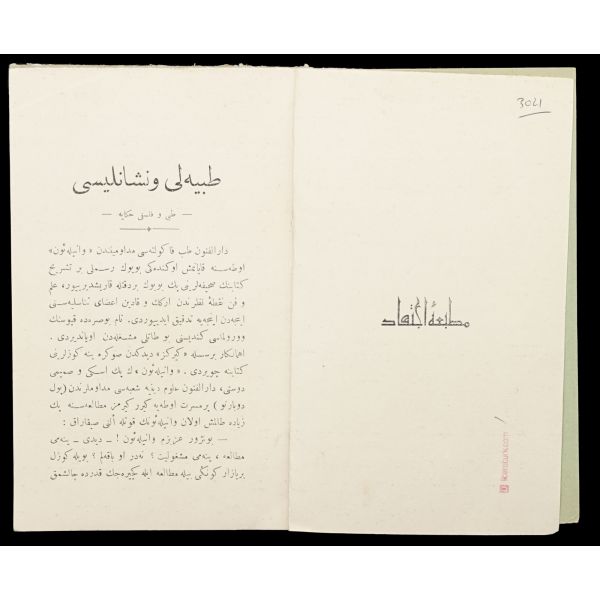 3021
مطبعهٔ اجتهاد
libersturk.com
طبیه‌لی ونشانلیسی
— طبی و فلسفی حکایه —
دارالفنون طب فاکولته‌سی مداومیندن « وانیله‌ئون»
اوطه‌سنه قاپانمش اوکنده‌کی بویوك رسملی بر تشریح
کتابنك صحیفه‌لرینی پك بویوك بردقتله قاریشدیریور، علم
و فن نقطهٔ نظرندن ارکك و قادین اعضای تناسلیه‌سنی
اینجه‌دن اینجه‌یه تدقیق ایدییوردی. تام بوصره‌ده قپوسنك
وورولماسی کندیسنی بو طاتلی مشغله‌دن اویاندیردی .
اهمالکار برسسله « کیرکز» دیدکدن صوکره ینه کوزلرینی
کتابنه چویردی . « وانیله‌ئون »ك پك اسکی و صمیمی
دوستی، دارالفنون علوم دینیه شعبه‌سی مداوملرندن (پول
دوبارنو ) پرمسرت اوطه‌یه کیرر کیرمز مطالعه‌سنه پك
زیاده طالمش اولان وانیله‌ئونك قولله ألنی صیقاراق :
— بونژور عزیزم وانیله‌ئون ! ـ دیدی ـ ینه‌می
مطالعه ، ینه‌می مشغولیت ؟ نه‌در او باقه‌لم ؟ بویله کوزل
بربازار کونکی بیله مطالعه ایله کیجیره‌جك قدرده چالشمق